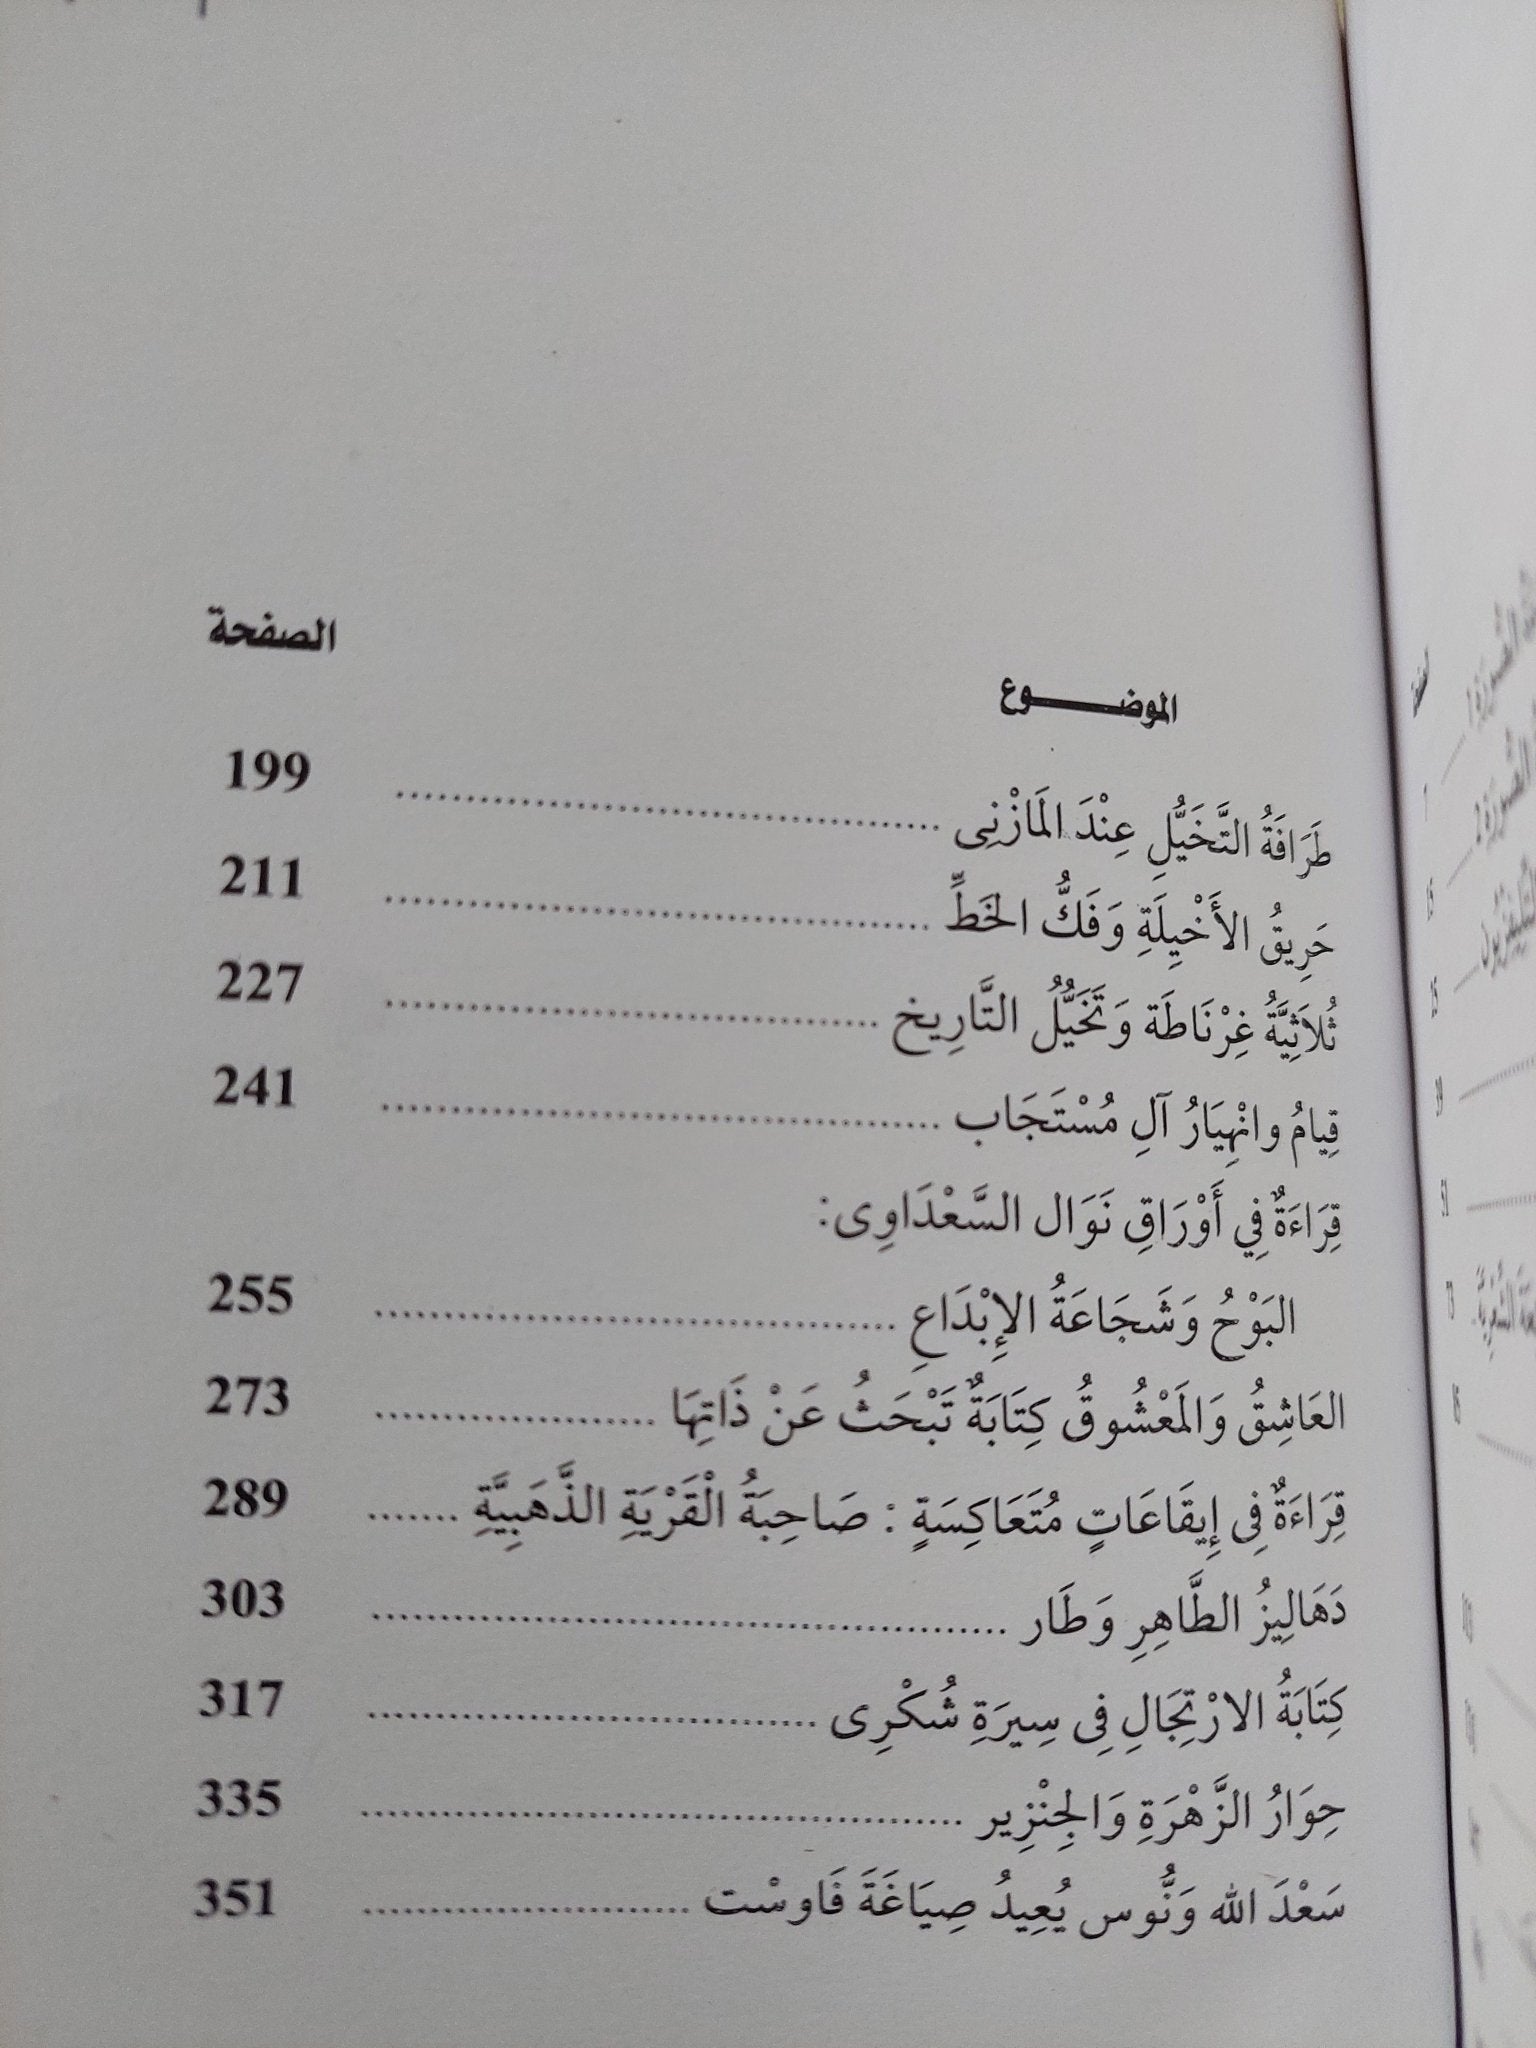 الموضـــــــوع الصفحة
طَرَافَةُ التَّخَيُّلِ عِنْدَ المَازْنِى ........................................ 199
حَرِيقُ الأَخْيِلَةِ وَفَكُّ الخَطِّ ........................................ 211
ثُلاَثِيَّةُ غِرْنَاطَة وَتَخَيُّلُ التَّارِيخ .................................... 227
قِيامُ وانْهِيَارُ آلِ مُسْتَجَاب ........................................ 241
قِرَاءَةٌ فِي أَوْرَاقِ نَوَال السَّعْدَاوِى:
البَوْحُ وَشَجَاعَةُ الإِبْدَاعِ ...................................... 255
العَاشِقُ وَالمَعْشُوقُ كِتَابَةٌ تَبْحَثُ عَنْ ذَاتِهَا ..................... 273
قِرَاءَةٌ فِى إِيقَاعَاتٍ مُتَعَاكِسَةٍ : صَاحِبَةُ الْقَرْيَةِ الذَّهَبِيَّةِ ....... 289
دَهَالِيزُ الطَّاهِرِ وَطَار .............................................. 303
كِتَابَةُ الارْتِجَالِ فِى سِيرَةِ شُكْرِى ................................. 317
حِوَارُ الزَّهْرَةِ وَالجِنْزِير ............................................ 335
سَعْدَ الله وَنُّوس يُعِيدُ صِيَاغَةَ فَاوسْت ......................... 351